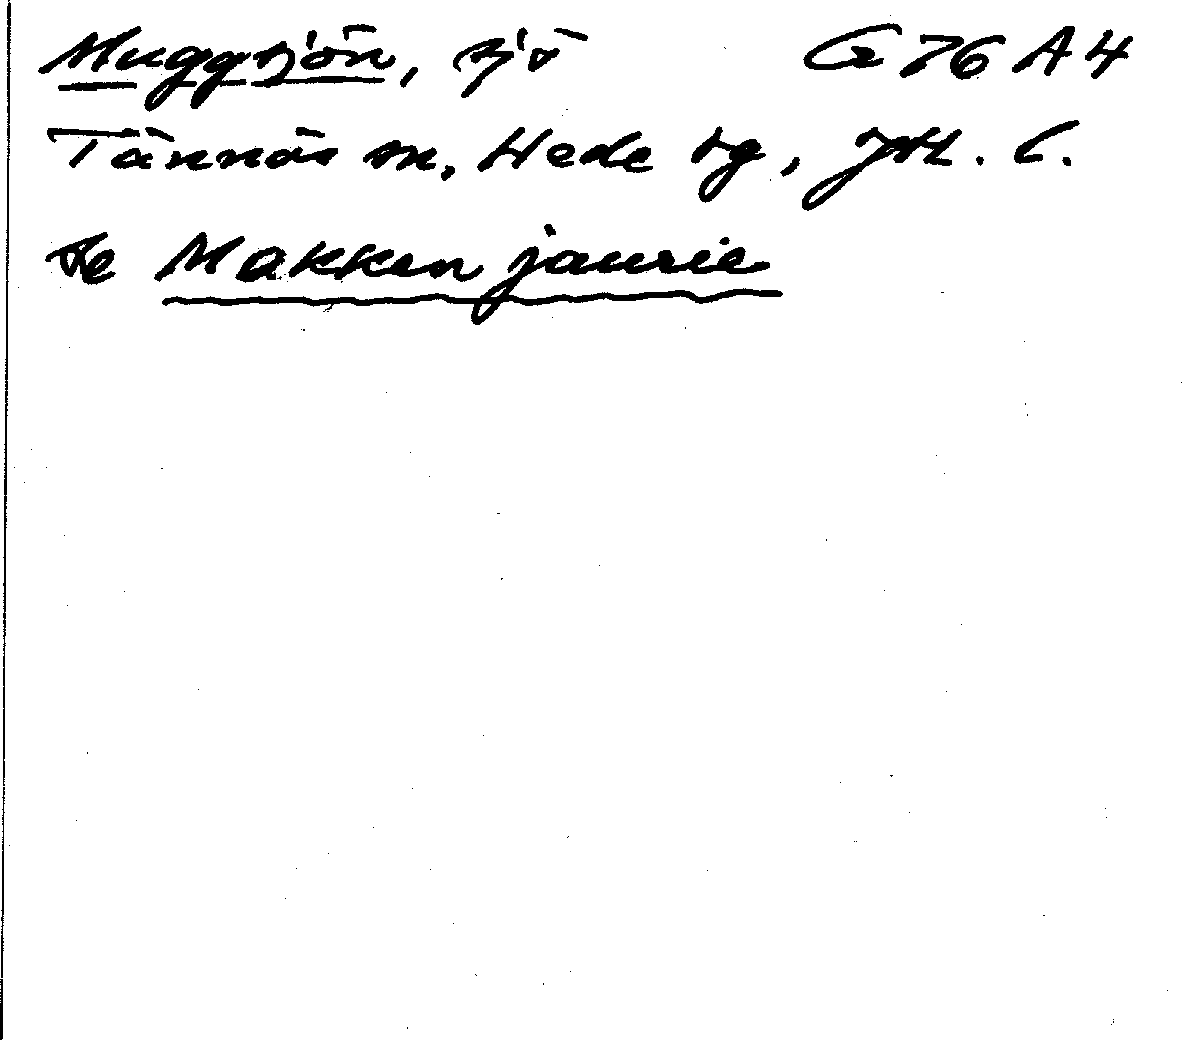 Muggsjön, sjö G 76 A 4
Tännäs sn, Hede tg, Jtl. l.
Se Makkenjaurie